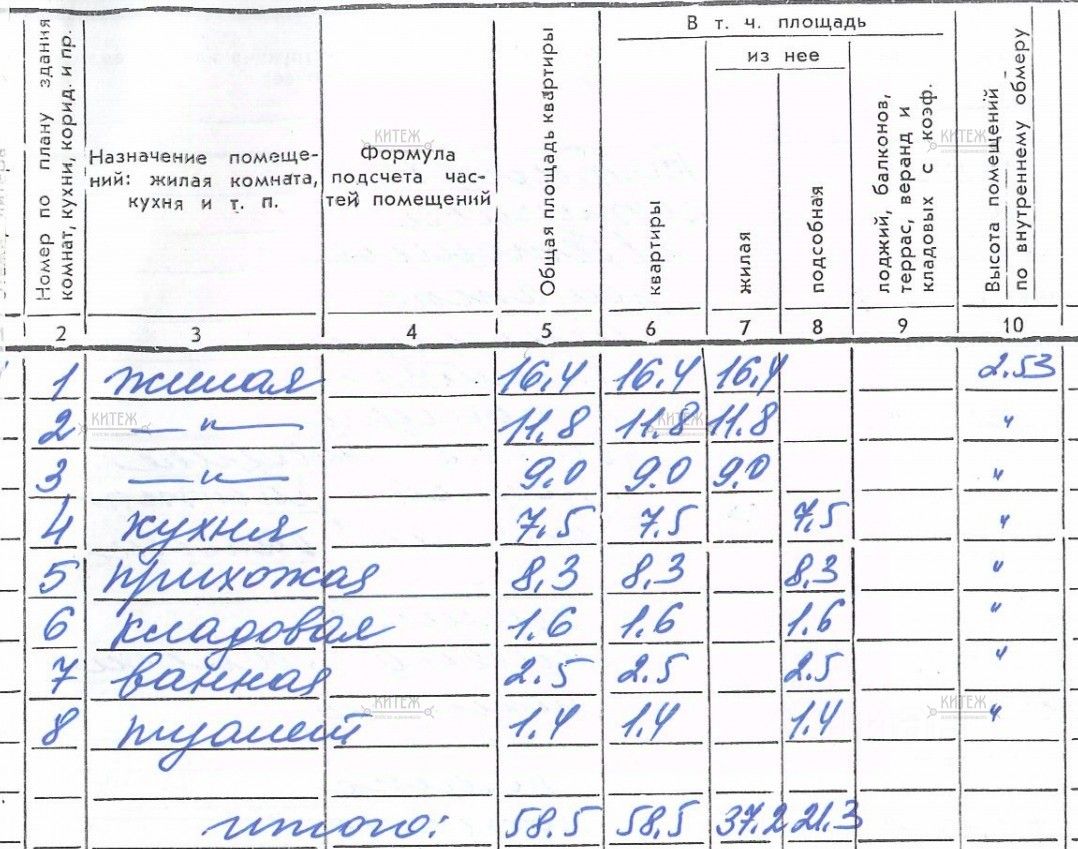 Номер по плану здания
комнат, кухни, корид. и пр.
Назначение помеще-
ний: жилая комната,
кухня и т. п.
Формула
подсчета час-
тей помещений
Общая площадь квартиры
В т. ч. площадь
из нее
квартиры
жилая
подсобная
лоджий, балконов,
террас, веранд и
кладовых с коэф.
Высота помещений
по внутреннему обмеру
2 3 4 5 6 7 8 9 10
1 жилая 16,4 16.4 16,4 2.53
2 —"— 11.8 11.8 11.8 "
3 —"— 9.0 9.0 9.0 "
4 кухня 7.5 7.5 7,5 "
5 прихожая 8,3 8,3 8,3 "
6 кладовая 1.6 1.6 1.6 "
7 ванная 2.5 2.5 2.5 "
8 туалет 1.4 1.4 1.4 "
итого: 58.5 58,5 37.2 21.3
КИТЕЖ
КИТЕЖ
КИТЕЖ
КИТЕЖ
КИТЕЖ
КИТЕЖ